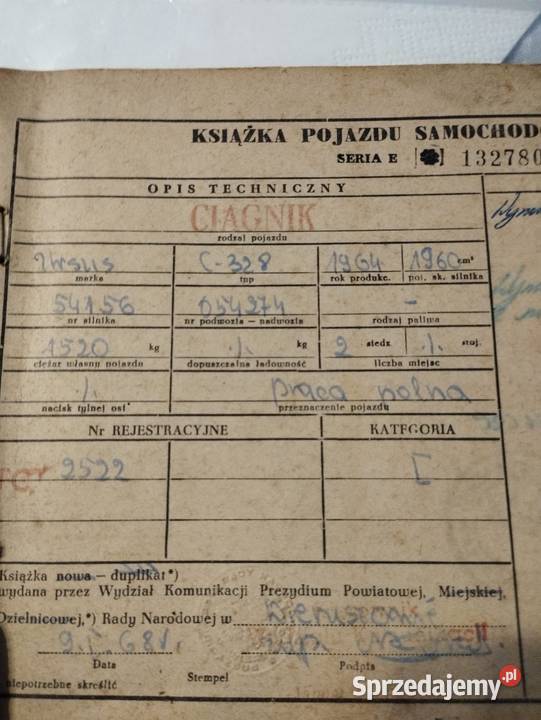 KSIĄŻKA POJAZDU SAMOCHOD
SERIA E 132780
OPIS TECHNICZNY
CIĄGNIK
rodzaj pojazdu
Ursus C-328 1964 1960 cm³
marka typ rok produkc. poj. sk. silnika
54156 054274 -
nr silnika nr podwozia — nadwozia rodzaj paliwa
1520 kg ./. kg 2 siedz. ./. stoj.
ciężar własny pojazdu dopuszczalna ładowność liczba miejsc
./. praca polna
nacisk tylnej osi* przeznaczenie pojazdu
Nr REJESTRACYJNE KATEGORIA
2522 I
Książka nowa — duplikat*)
wydana przez Wydział Komunikacji Prezydium Powiatowej, Miejskiej,
Dzielnicowej,*) Rady Narodowej w
Data Stempel Podpis
niepotrzebne skreślić
Sprzedajemy.pl